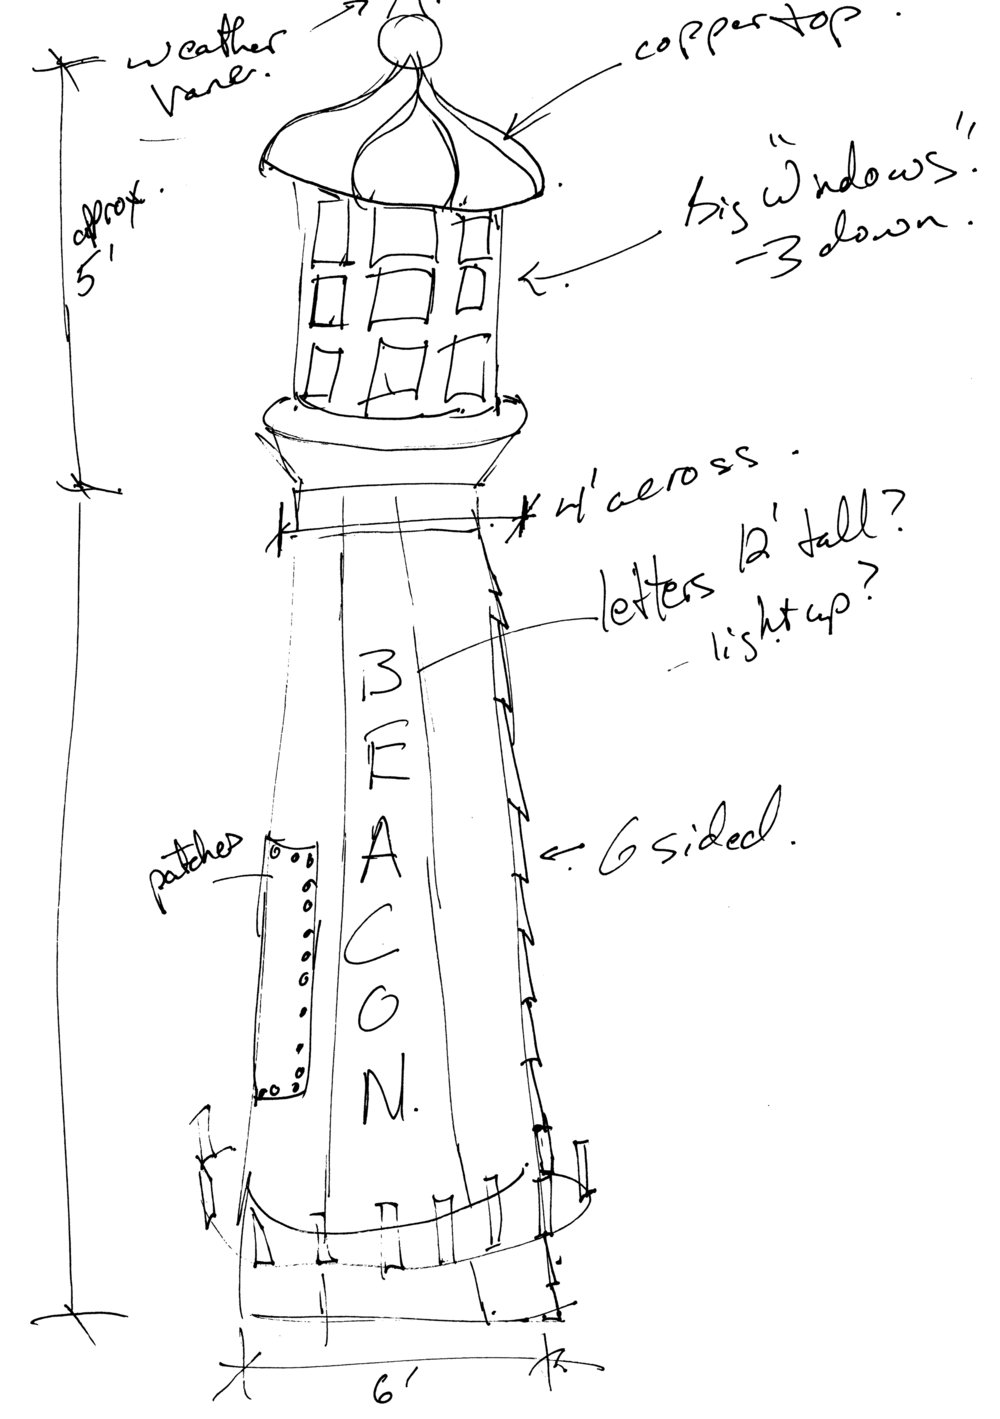 weather
vane.
coppertop.
big "windows".
-3 down.
aprox.
5'
4' across.
letters 12' tall?
- light up?
BEACON.
6 sided.
patches
6'